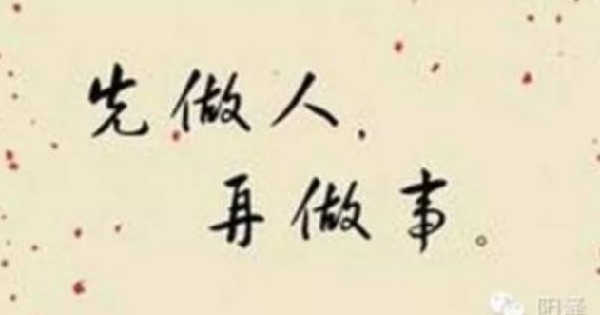 先做人，
再做事。
阳泽